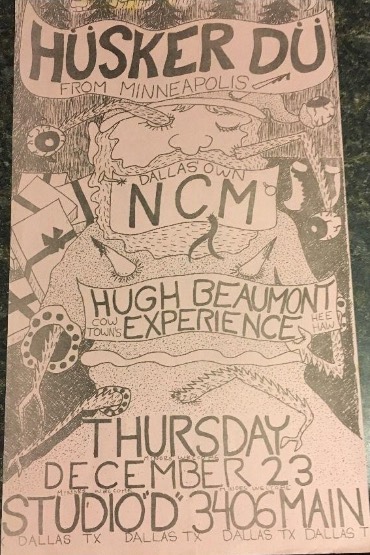 HÜSKER DÜ
FROM MINNEAPOLIS
DALLAS' OWN
NCM
HUGH BEAUMONT
COW TOWN'S EXPERIENCE HEE HAW
THURSDAY
MINORS WELCOME
DECEMBER 23
MINORS WELCOME MINORS WELCOME
STUDIO "D" 3406 MAIN
DALLAS TX DALLAS TX DALLAS TX DALLAS T